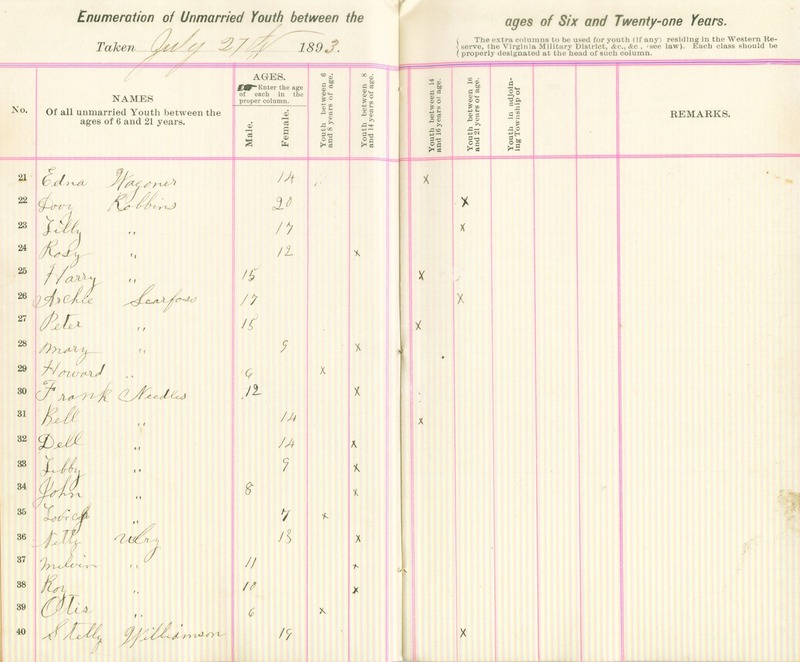 Enumeration of Unmarried Youth between the ages of Six and Twenty-one Years.
Taken July 27th 1893.
The extra columns to be used for youth (if any) residing in the Western Re-
serve, the Virginia Military District, &c., &c., (see law). Each class should be
properly designated at the head of such column.
No.
NAMES
Of all unmarried Youth between the
ages of 6 and 21 years.
AGES.
Enter the age
of each in the
proper column.
Male.
Female.
Youth between 6
and 8 years of age.
Youth between 8
and 14 years of age.
Youth between 14
and 16 years of age.
Youth between 16
and 21 years of age.
Youth in adjoin-
ing Township of
REMARKS.
21 Edna Wagoner 14 x
22 Dovy Robbins 20 x
23 Tilly " 17 x
24 Rosy " 12 x
25 Harry " 15 x
26 Archie Scarfoss 17 x
27 Peter " 15 x
28 Mary " 9 x
29 Howard " 6 x
30 Frank Needles 12 x
31 Bell " 14 x
32 Dell " 14 x
33 Libby " 9 x
34 John " 8 x
35 " 7 x
36 Ulry 13 x
37 Melvin " 11 x
38 Roy " 10 x
39 Otis " 6 x
40 Stelly Williamson 19 x